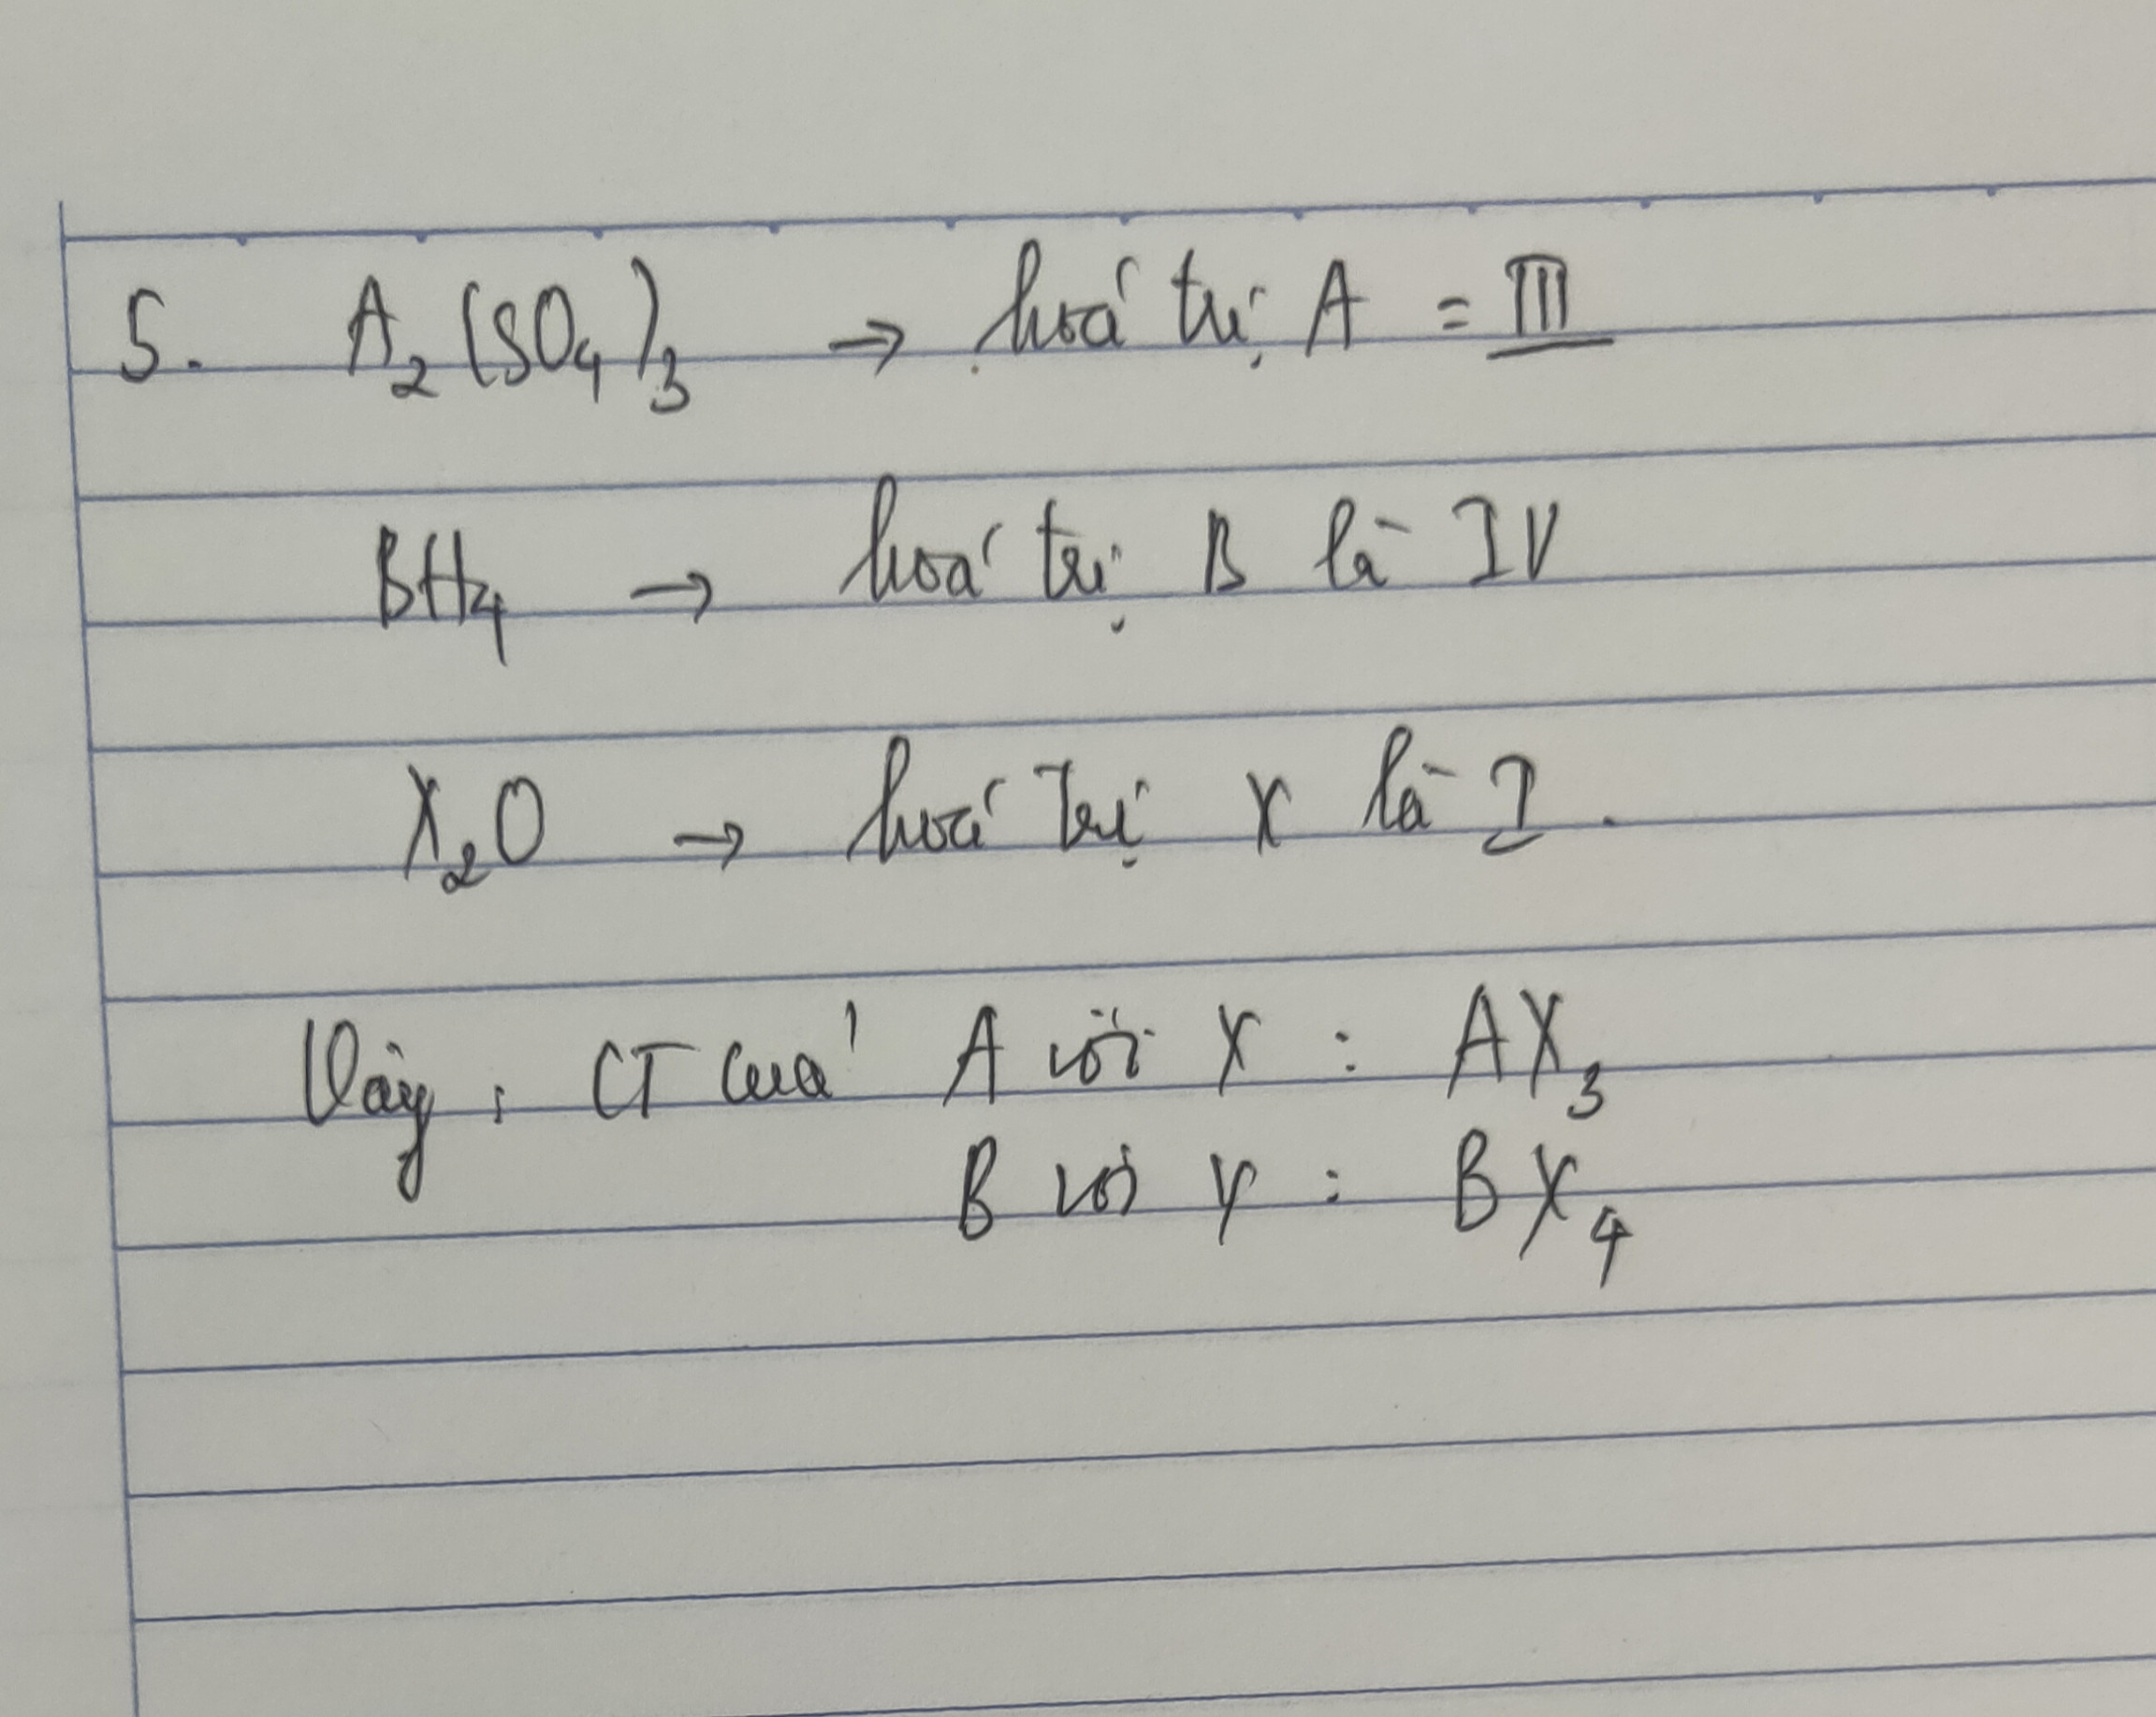 5. A₂(SO₄)₃ → hoá trị A = III
BH₄ → hoá trị B là IV
X₂O → hoá trị X là I.
Vậy: CT của A với X : AX₃
B với Y : BX₄